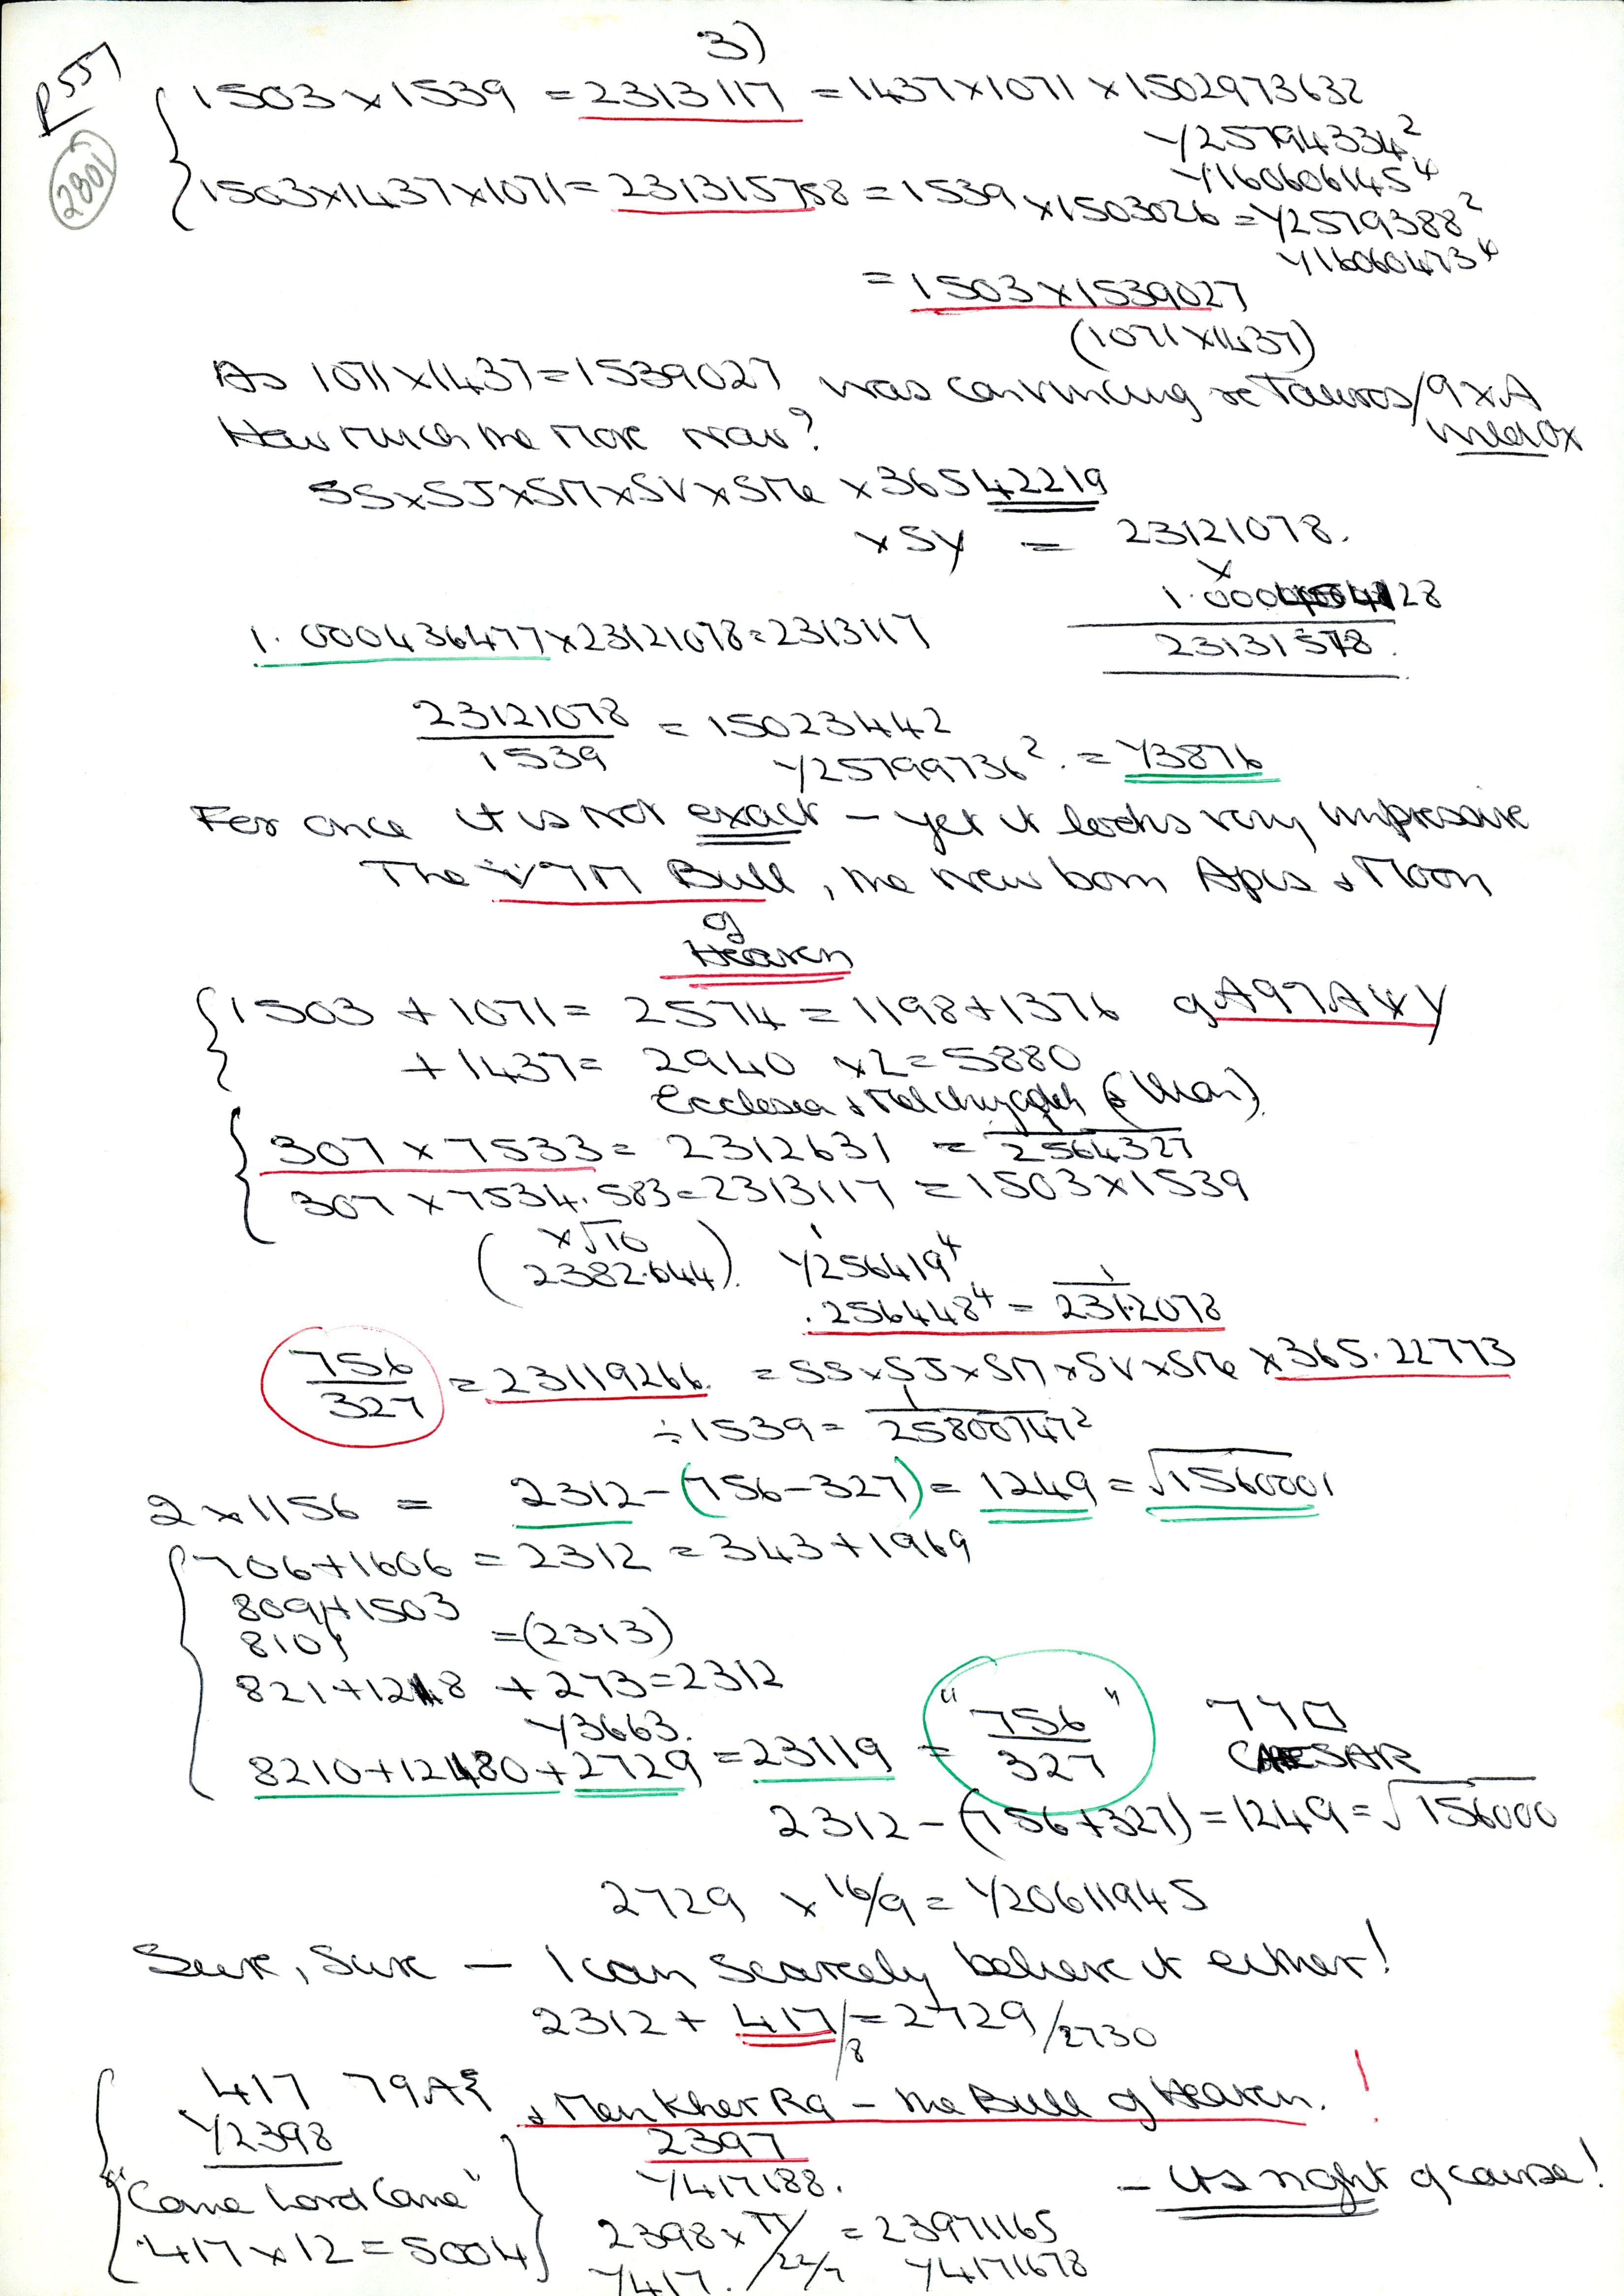 3)
P557
2801
1503 × 1539 = 2313117 = 1437 × 1071 × 1502973632
Y25794334²
Y160606145⁴
1503 × 1437 × 1071 = 231315758 = 1539 × 1503026 = Y2579388²
Y16060473⁴
= 1503 × 1539027
(1071 × 1437)
As 1071 × 1437 = 1539027 was convincing re Tauros/
How much the more now?
SS × SJ × SM × SV × SMe × 36542219
× SY = 23121078.
×
1.000436477 × 23121078 = 2313117
23121078 / 1539 = 15023442
Y25799736² . = Y3876
For once it is not exact – yet it looks very impressive
The Bull, the new born Apis & Moon
of
Heaven
1503 + 1071 = 2574 = 1198 + 1376
+ 1437 = 2940 × 2 = 5880
Ecclesia & Melchizedek
307 × 7533 = 2312631 = 1/2564327
307 × 7534.583 = 2313117 = 1503 × 1539
(×√10
2382.644). Y256419⁴
.256448⁴ = 1/2312078
756/327 = 23119266. = SS × SJ × SM × SV × SMe × 365.22773
÷ 1539 = 1/25800747²
2 × 1156 = 2312 – (756 – 327) = 1249 = √1560001
706 + 1606 = 2312 = 343 + 1969
809 + 1503
810 = (2313)
821 + 1218 + 273 = 2312
Y3663.
8210 + 12180 + 2729 = 23119 = "756/327" 770
CAESAR
2312 – (756 + 327) = 1249 = √156000
2729 × 16/9 = Y20611945
Sure, Sure — I can scarcely believe it either!
2312 + 417/8 = 2729/2730
417 & Men Kher Ra – the Bull of Heaven. !
Y2398 2397
Y417188. – its right of course!
"Come Lord Come"
417 × 12 = 5004
2398 × π / 22/7 = 23971165
Y417. Y4171678